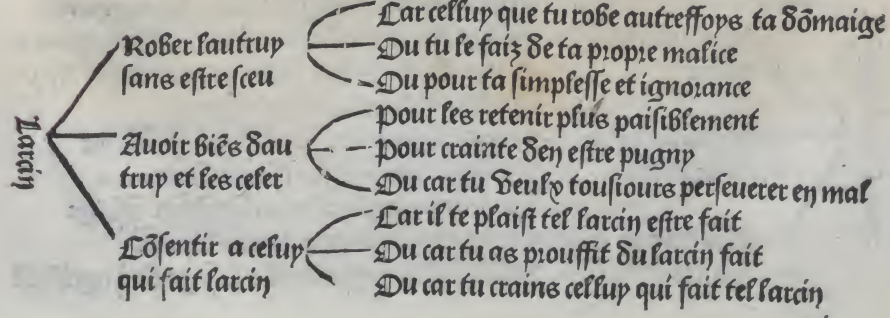 Larcin
Rober lautruy
sans estre sceu
Car celluy que tu robe autreffoys ta dõmaige
Ou tu le faiz de ta propre malice
Ou pour ta simplesse et ignorance
Avoir biẽs dau
truy et les celer
Pour les retenir plus paisiblement
Pour crainte den estre pugny
Ou car tu veulx tousiours perseuerer en mal
Cõsentir a celuy
qui fait larcin
Car il te plaist tel larcin estre fait
Ou car tu as prouffit du larcin fait
Ou car tu crains celluy qui fait tel larcin